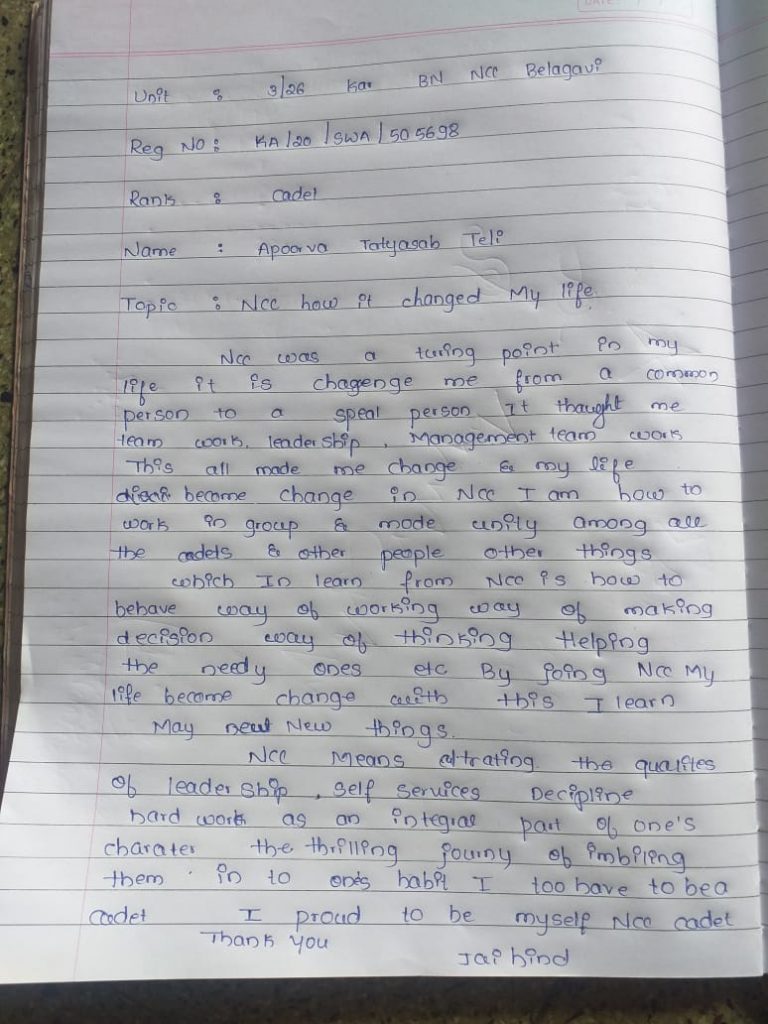 DATE:
Unit : 3/26 Kar BN NCC Belagavi
Reg NO : KA/20/SWA/505698
Rank : Cadel
Name : Apoorva Tatyasab Teli
Topic : NCC how it changed My life.
NCC was a turing point in my
life it is chagenge me from a common
person to a speal person It thaught me
team work, leader ship, Management team work
This all made me change & my life
become change in NCC I am how to
work in group & mode unity among all
the cadels & other people other things
which In learn from NCC is how to
behave way of working way of making
decision way of thinking Helping
the needy ones etc By joing NCC My
life become change with this I learn
May New things.
NCC Means the qualites
of leader ship, self services Decipline
hard work as an integral part of one's
charater the thrilling journy of imbiling
them in to one's habit I too have to be a
cadet I proud to be myself NCC cadet
Thank you
Jai hind